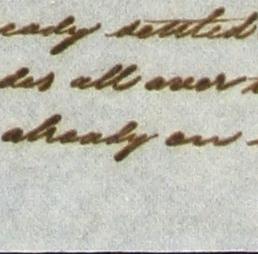 eady settled
des all over
already on